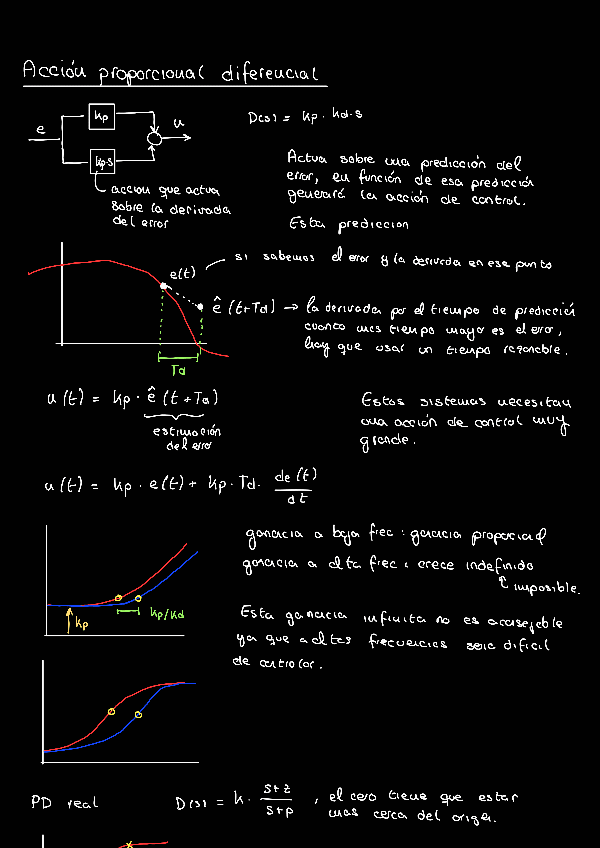 Acción proporcional diferencial
kp
e
u
D(s) = kp · kd·s
kp s
acción que actua
sobre la derivada
del error
Actua sobre una predicción del
error, en función de esa predicción
generará la acción de control.
Esta prediccion
si sabemos el error y la derivada en ese punto
e(t)
ê (t+Td) → la derivada por el tiempo de predicción
cuanto mas tiempo mayor es el error,
hay que usar un tiempo razonable.
Td
u(t) = kp · ê (t+Td)
estimación
del error
Estos sistemas necesitan
una acción de control muy
grande.
u(t) = kp · e(t) + kp · Td · de(t)/dt
ganacia a baja frec : ganacia proporcial
ganacia a alta frec : crece indefinido
imposible.
kp
kp/kd
Esta ganacia infinita no es aconsejable
ya que a altas frecuencias seria dificil
de controlar.
PD real
D(s) = k · s+z/s+p , el cero tiene que estar
mas cerca del origen.